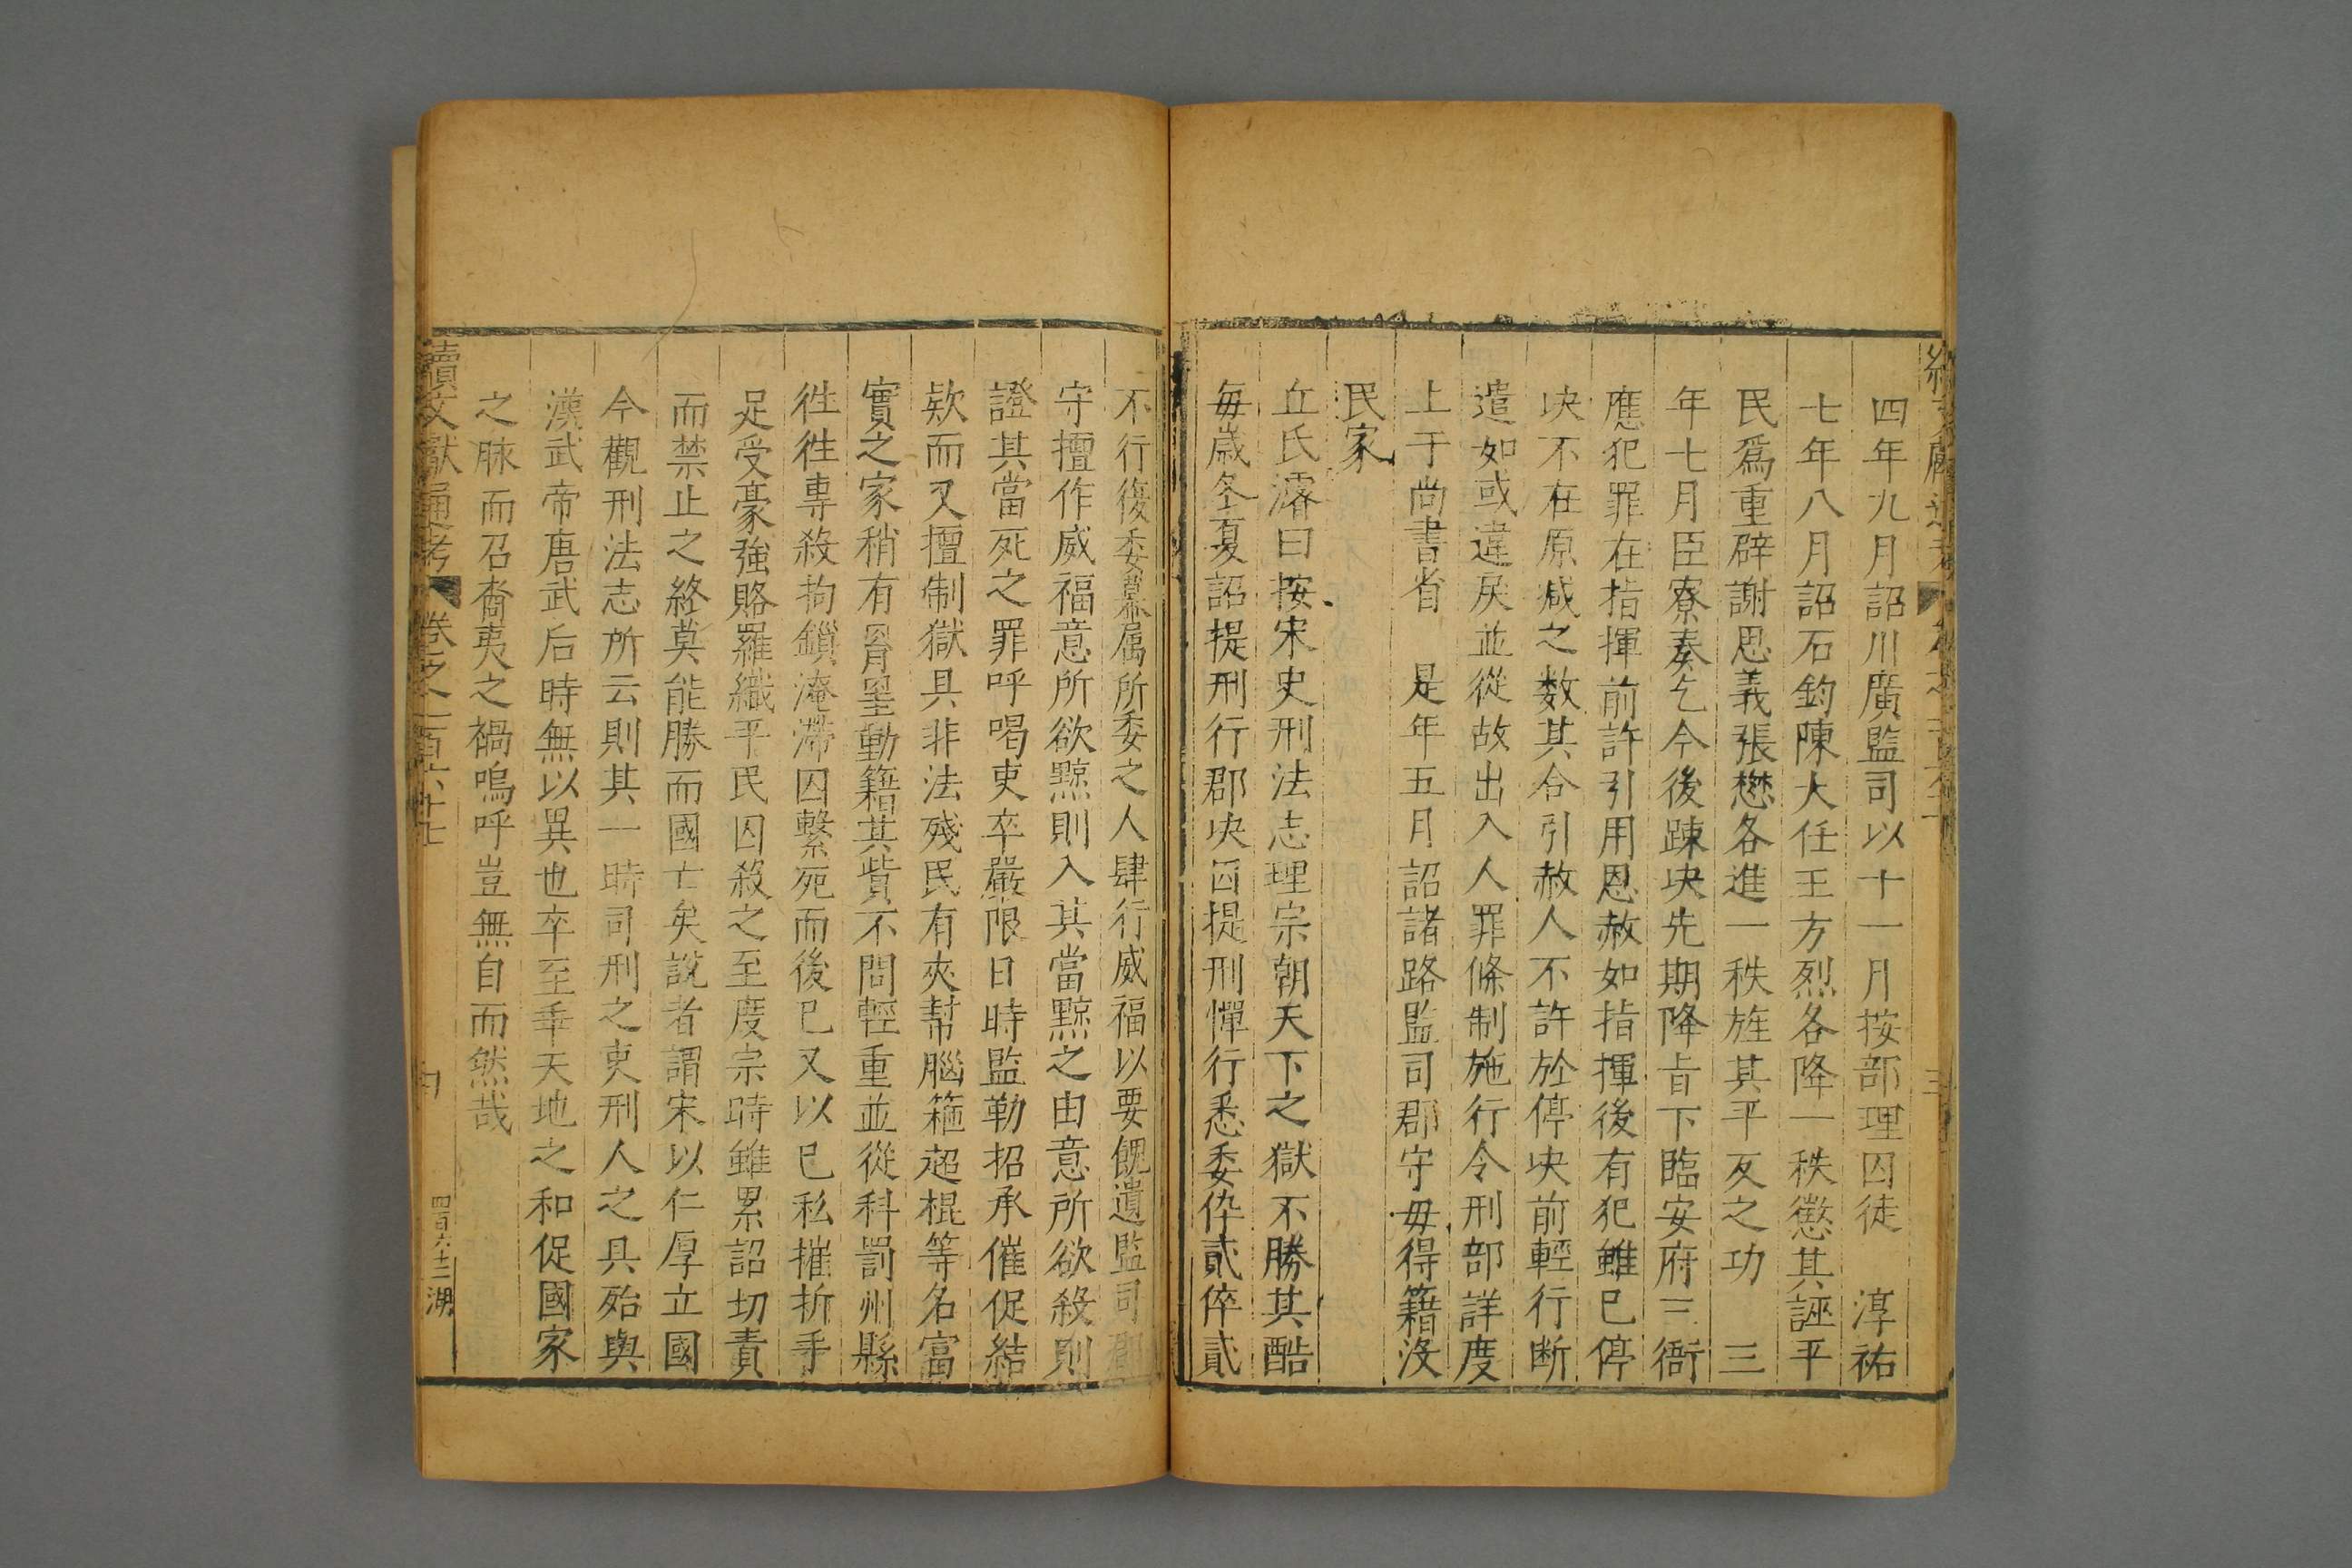 四年九月詔川廣監司以十一月按部理囚徒　淳祐
七年八月詔石鈞陳大任王方烈各降一秩懲其誣平
民爲重辟謝思義張懋各進一秩旌其平反之功　三
年七月臣寮奏乞今後踈决先期降旨下臨安府三衙
應犯罪在指揮前許引用恩赦如指揮後有犯雖已停
决不在原减之数其合引赦人不許於停决前輕行断
遣如或違戾並從故出入人罪條制施行令刑部詳度
上于尚書省　是年五月詔諸路監司郡守毋得籍没
民家
丘氏濬曰按宋史刑法志理宗朝天下之獄不勝其酷
毎歳冬夏詔提刑行郡决囚提刑憚行悉委倅貳倅貳
不行復委幕属所委之人肆行威福以要餽遺監司郡
守擅作威福意所欲黥則入其當黥之由意所欲殺則
證其當死之罪呼喝吏卒嚴限日時監勒招承催促結
欵而又擅制獄具非法殘民有夾幇腦箍超棍等名富
實之家稍有罥罣動籍其貲不問輕重並從科罰州縣
徃徃專殺拘鎖淹滯囚繫死而後已又以已私摧折手
足受豪強賂羅織平民囚殺之至度宗時雖累詔切責
而禁止之終莫能勝而國亡矣說者謂宋以仁厚立國
今觀刑法志所云則其一時司刑之吏刑人之具殆與
漢武帝唐武后時無以異也卒至乖天地之和促國家
之脉而召裔夷之禍嗚呼豈無自而然哉
續文獻通考　卷之一百六十七
四百六十二　湖